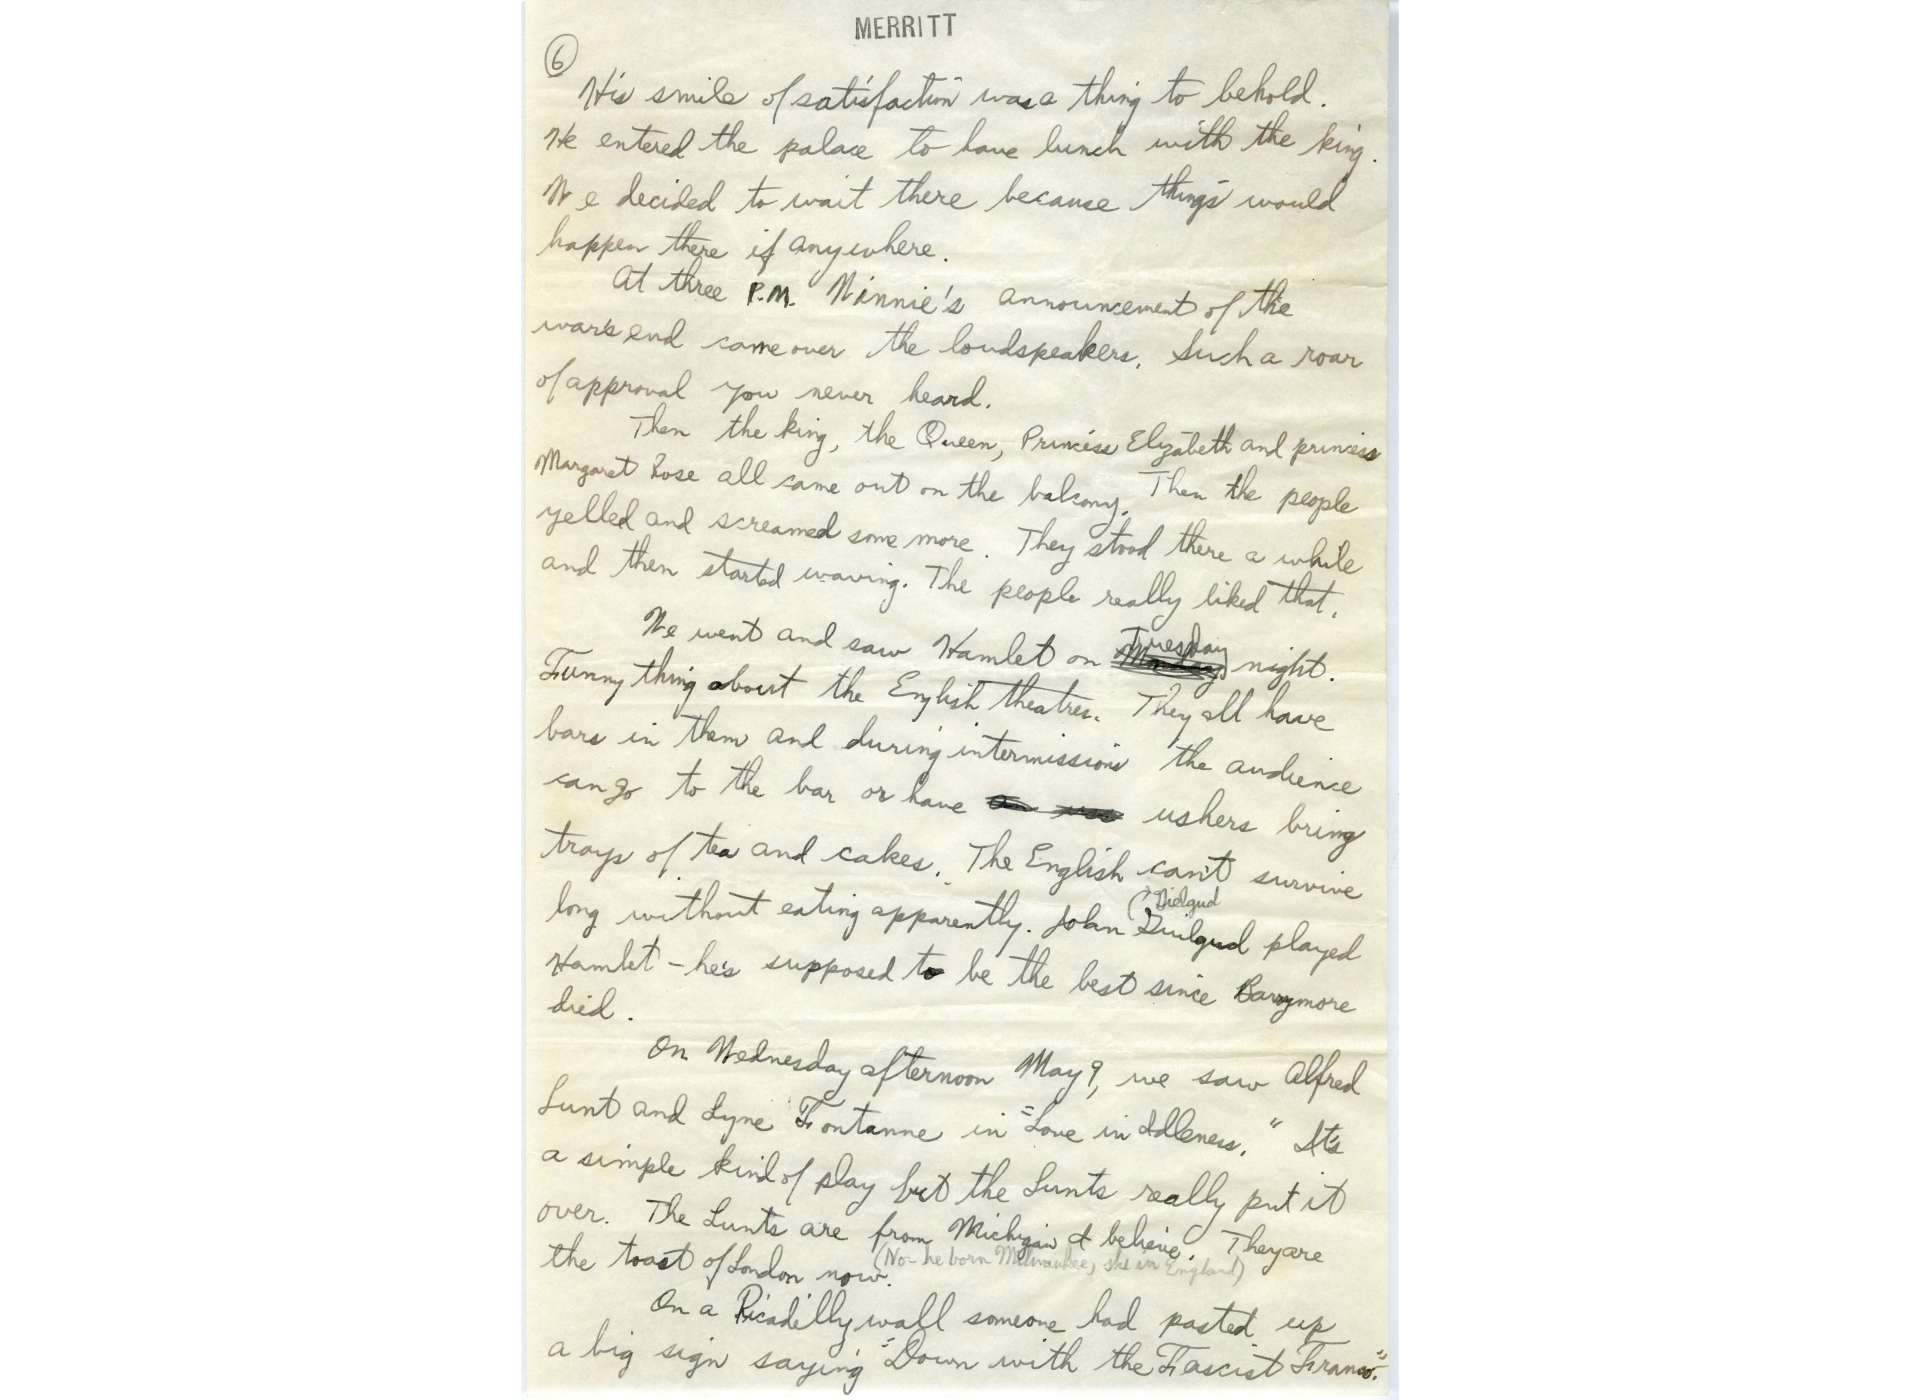 MERRITT
6
His smile of satisfaction was a thing to behold.
He entered the palace to have lunch with the king.
We decided to wait there because things would
happen there if anywhere.
At three P.M. Winnie's announcement of the
war's end came over the loudspeakers. Such a roar
of approval you never heard.
Then the king, the Queen, Princess Elizabeth and princess
Margaret Rose all came out on the balcony. Then the people
yelled and screamed some more. They stood there a while
and then started waving. The people really liked that.
We went and saw Hamlet on Monday Tuesday night.
Funny thing about the English theatres. They all have
bars in them and during intermissions the audience
can go to the bar or have ushers bring
trays of tea and cakes. The English can't survive
long without eating apparently. John Guilgud (Gielgud played
Hamlet – he's supposed to be the best since Barrymore
died.
On Wednesday afternoon May 9, we saw Alfred
Lunt and Lyne Fontanne in "Love in Idleness." It's
a simple kind of play but the Lunts really put it
over. The Lunts are from Michigan I believe. They are
(No - he born Milwaukee, she in England)
the toast of London now.
On a Picadilly wall someone had pasted up
a big sign saying "Down with the Fascist Franco."